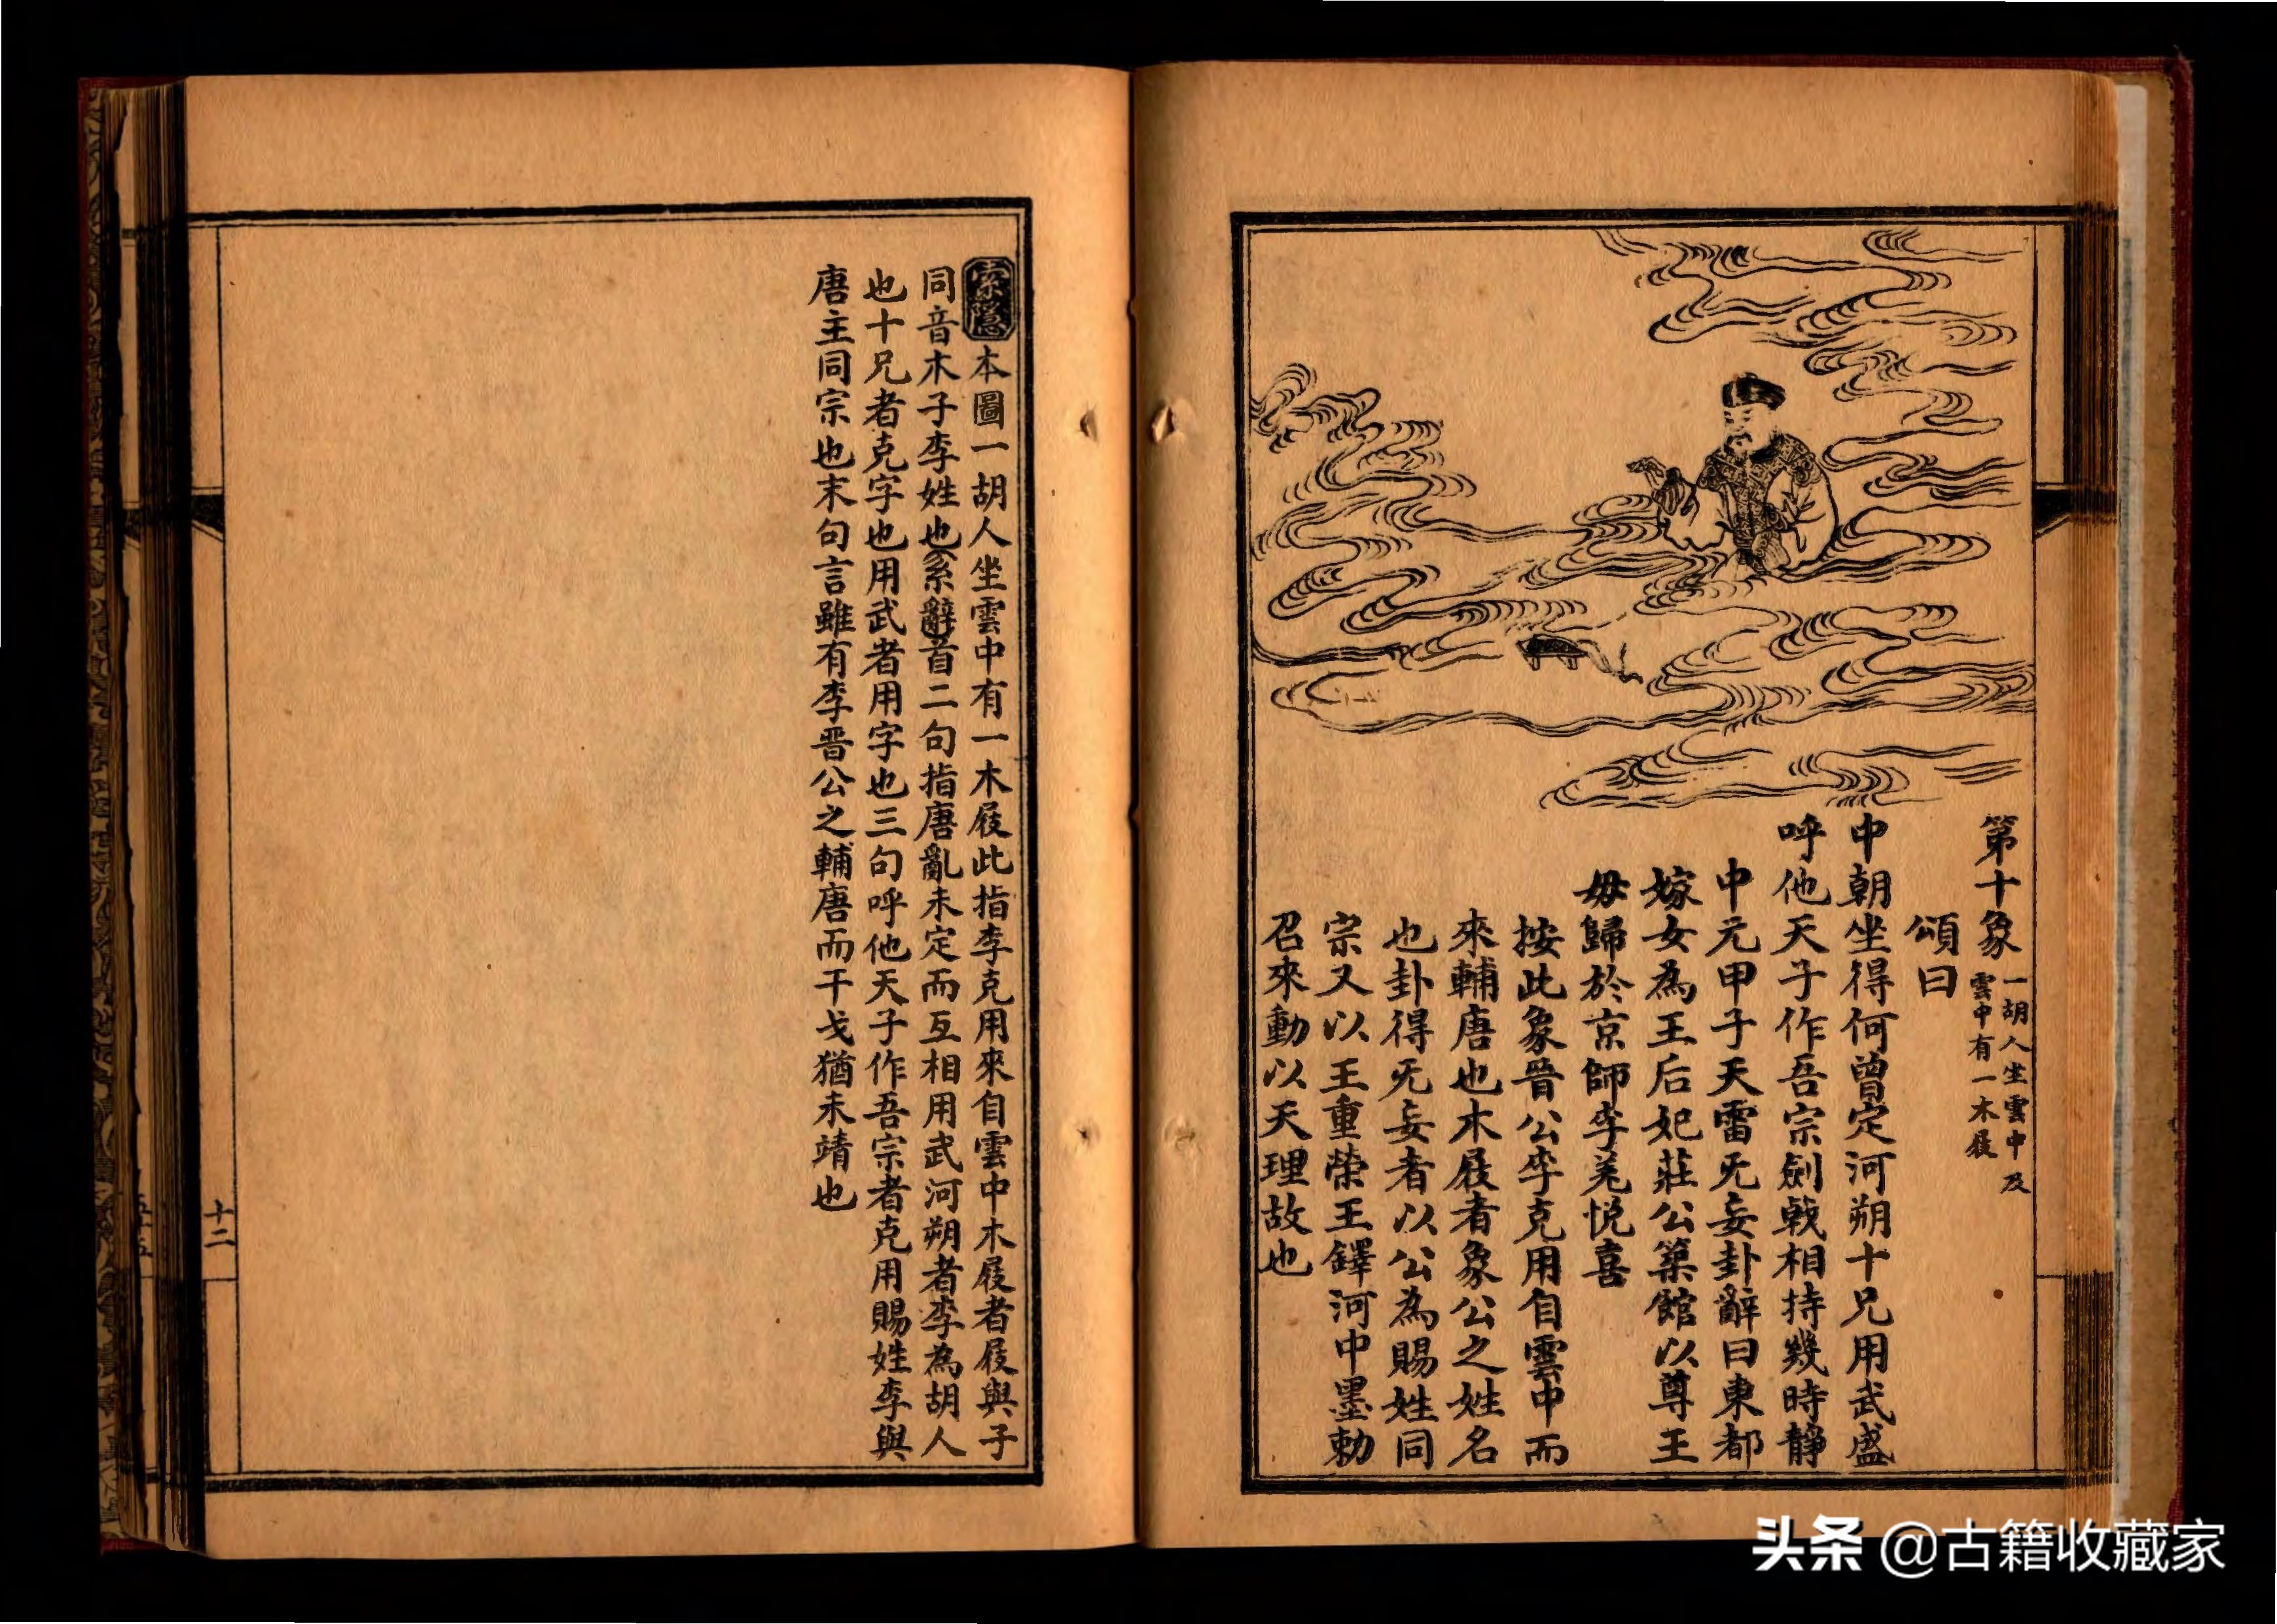 第十象
一胡人坐雲中及
雲中有一木屐
頌曰
中朝坐得何曾定河朔十兄用武盛
呼他天子作吾宗劍戟相持幾時靜
中元甲子天雷旡妄卦辭曰東都
嫁女為王后妃莊公築館以尊王
毋歸於京師李羌悅喜
按此象晉公李克用自雲中而
來輔唐也木屐者象公之姓名
也卦得旡妄者以公為賜姓同
宗又以王重榮王鐸河中墨勅
召來動以天理故也
索隱本圖一胡人坐雲中有一木屐此指李克用來自雲中木屐者屐與子
同音木子李姓也系辭首二句指唐亂未定而互相用武河朔者李為胡人
也十兄者克字也用武者用字也三句呼他天子作吾宗者克用賜姓李與
唐主同宗也末句言雖有李晋公之輔唐而干戈猶未靖也
十二
头条 @古籍收藏家